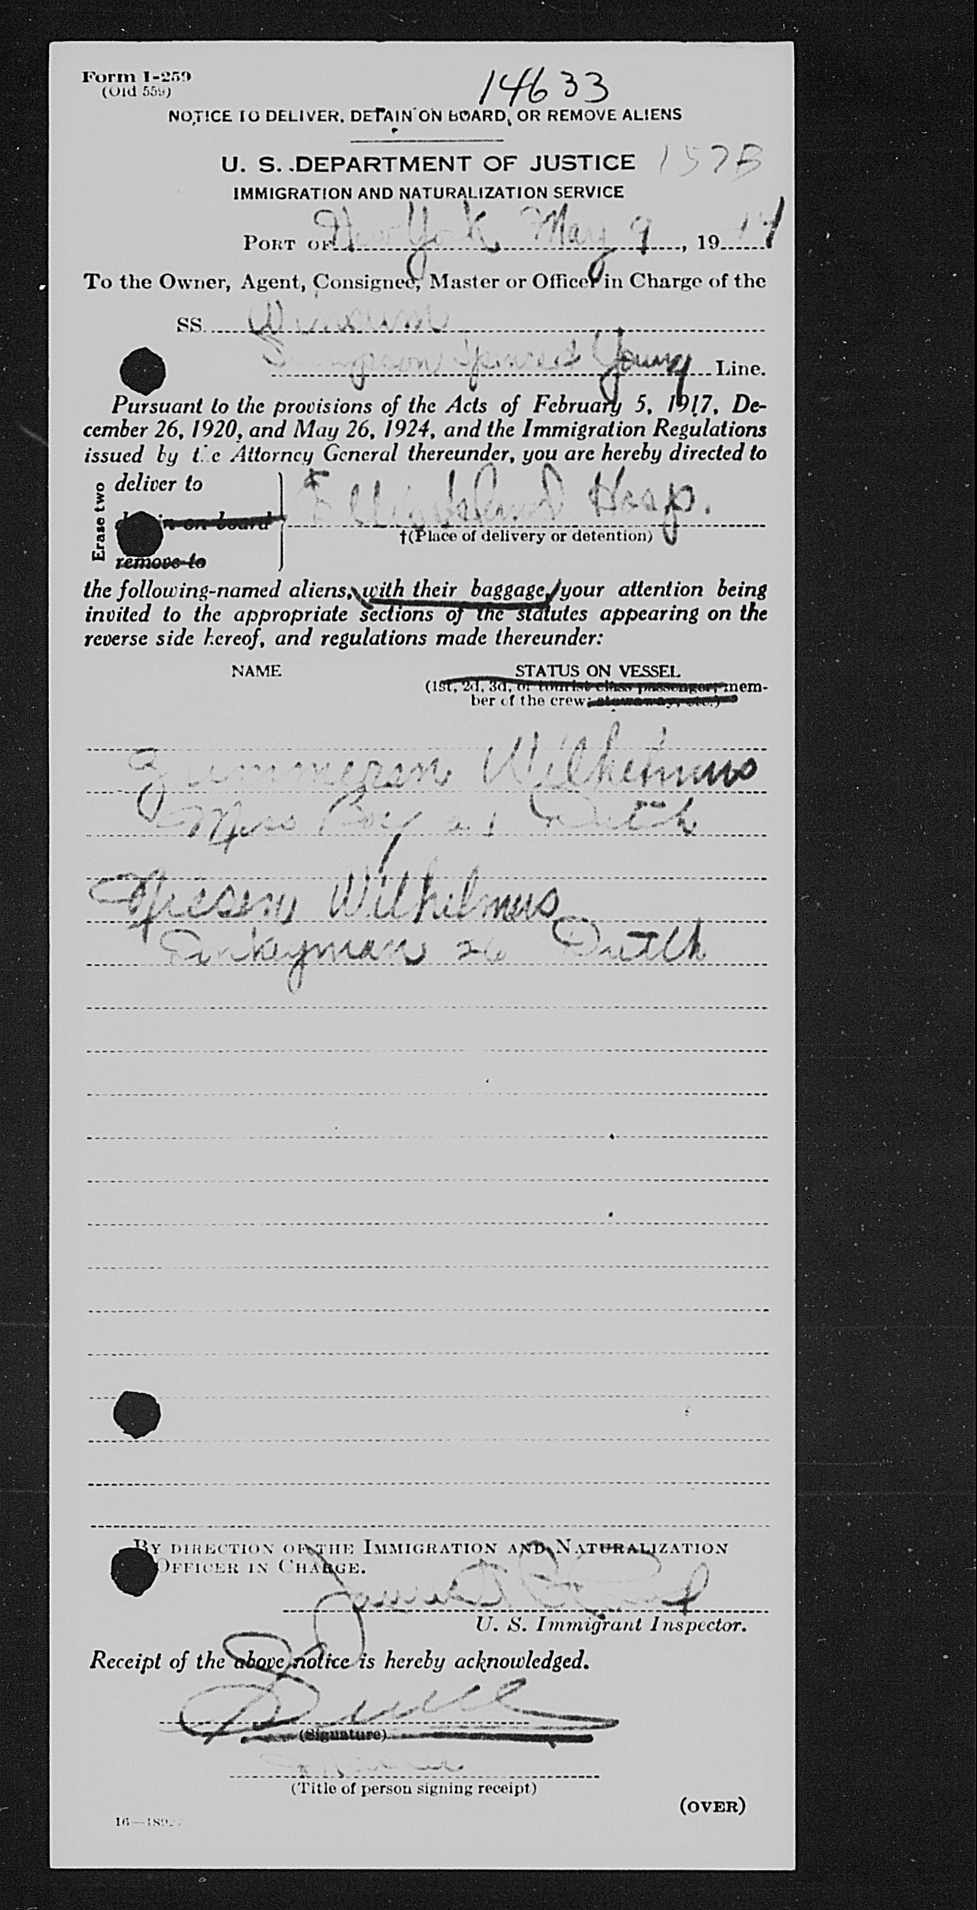 Form I-259
(Old 559)
14633
NOTICE TO DELIVER, DETAIN ON BOARD, OR REMOVE ALIENS
U. S. DEPARTMENT OF JUSTICE 157B
IMMIGRATION AND NATURALIZATION SERVICE
PORT OF New York, May 9, 19
To the Owner, Agent, Consignee, Master or Officer in Charge of the
SS.
Young Line.
Pursuant to the provisions of the Acts of February 5, 1917, De-
cember 26, 1920, and May 26, 1924, and the Immigration Regulations
issued by the Attorney General thereunder, you are hereby directed to
Erase two
deliver to
in on board
remove to
Ellis Island Hosp.
†(Place of delivery or detention)
the following-named aliens, with their baggage, your attention being
invited to the appropriate sections of the statutes appearing on the
reverse side hereof, and regulations made thereunder:
NAME STATUS ON VESSEL
(1st, 2d, 3d, or tourist class passenger; mem-
ber of the crew; stowaway, etc.)
Wilhelmus
Mess Boy Dutch
Wilhelmus
Donkeyman 26 Dutch
BY DIRECTION OF THE IMMIGRATION AND NATURALIZATION
OFFICER IN CHARGE.
James
U. S. Immigrant Inspector.
Receipt of the above notice is hereby acknowledged.
(Signature)
(Title of person signing receipt)
(OVER)